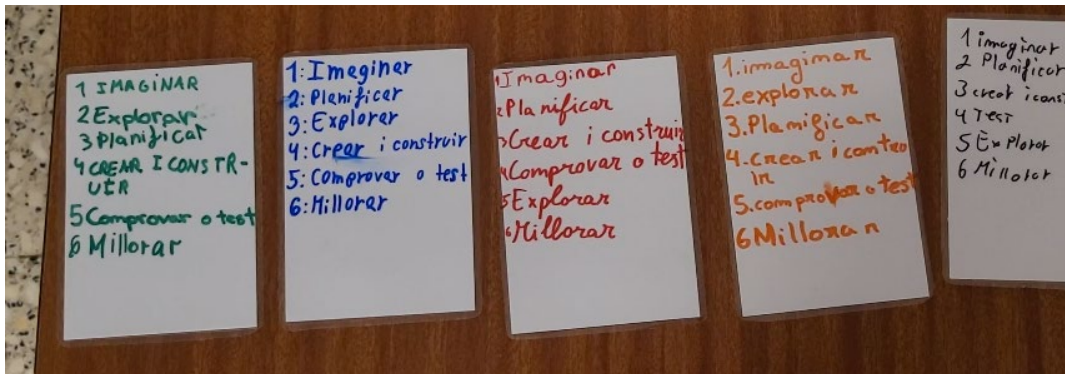 1 IMAGINAR
2 Explorar
3 planificar
4 CREAR I CONSTR-
UÏR
5 Comprovar o test
6 Millorar
1: Imaginar
2: Planificar
3: Explorar
4: Crear i construir
5: Comprovar o test
6: Millorar
1 Imaginar
2 Planificar
3 Crear i construir
4 Comprovar o test
5 Explorar
6 Millorar
1. imaginar
2. explorar
3. Planificar
4. Crear i contro
ir
5. comprovar o test
6 Millorar
1 imaginar
2 Planificar
3 creat i cons
4 Test
5 Explorar
6 Millorar